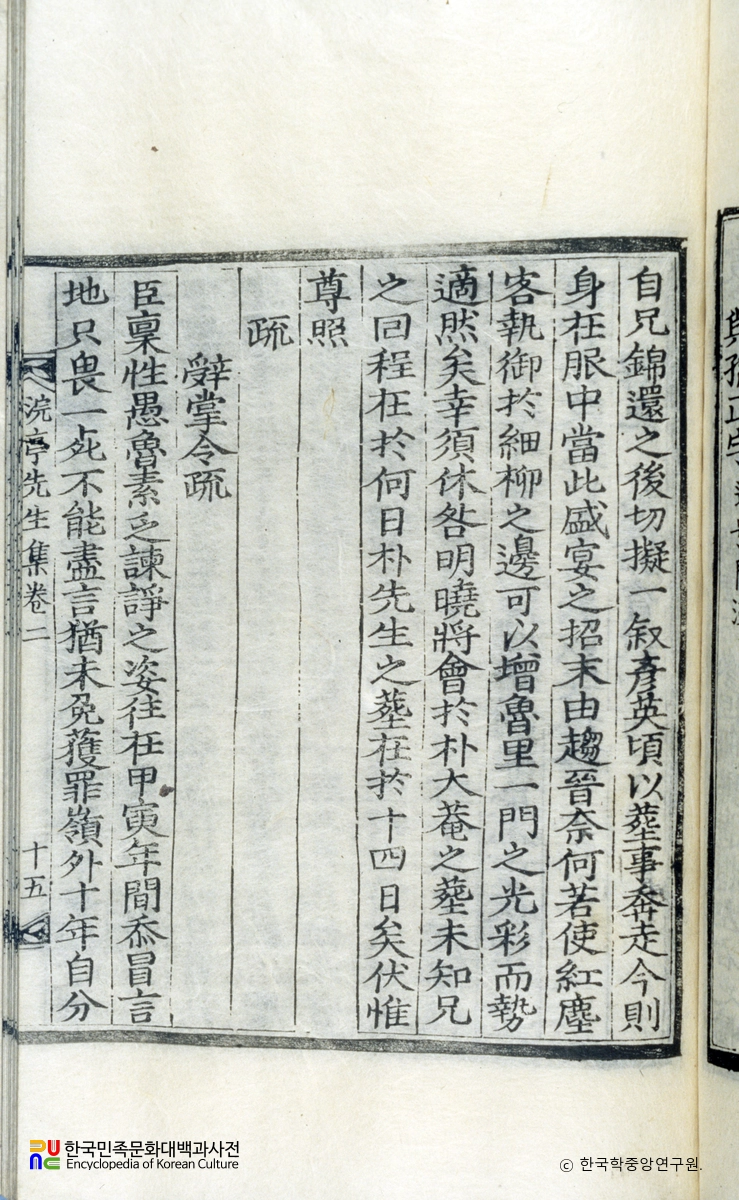 自兄錦還之後切擬一叙彥英頃以葬事奔走今則
身在服中當此盛宴之招末由趨晉奈何若使紅塵
客執御於細柳之邊可以增魯里一門之光彩而勢
適然矣幸須休咎明曉將會於朴大菴之葬未知兄
之回程在於何日朴先生之葬在於十四日矣伏惟
尊照
疏
辭掌令疏
臣稟性愚魯素乏諫諍之姿往在甲寅年間忝冒言
地只畏一死不能盡言猶未免獲罪嶺外十年自分
浣亭先生集卷二
十五
한국민족문화대백과사전
Encyclopedia of Korean Culture
© 한국학중앙연구원.